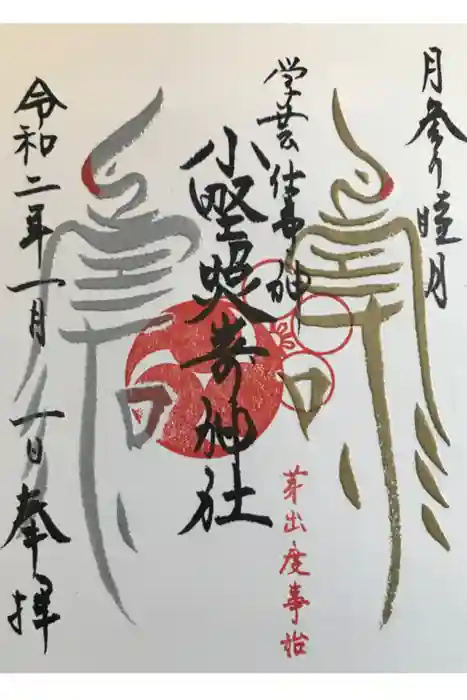 月参り睦月
学芸仕事神
小野照嵜神社
芽出度事始
令和二年一月一日奉拝